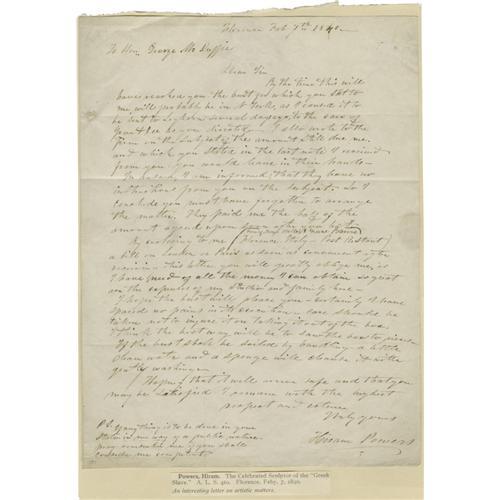 Florence Feb 7th 1840—
To Hon. George McDuffie
Dear Sir
By the time this will
have reached you the bust of which you sat to
me, will probably be in N York, as I caused it to
be sent to Leghorn several days ago, to the care of
I also wrote to the
firm on the subject of the amount still due me,
and which you stated in the last note I received
from you you would leave in their hands—
To day I am informed that they have no
instructions from you on the subject. So I
conclude you must have forgotten to arrange
the matter. They paid me the half of the
amount agreed upon
By enclosing to me (Florence Italy— Post Restant)
a bill on London or Paris as soon as convenient after
receiving this letter you will greatly oblige me, as
I have need of all the money I can obtain so great
are the expenses of my Studio and family here—
I hope the bust will please you— certainly I have
spared no pains in its execution— care should be
taken not to injure it on taking it out of the box.
I think the best way will be to saw the box to pieces
If the bust should be soiled by handling a little
clean water and a sponge will cleanse it with
gentle washing—
Hoping that it will arrive safe and that you
may be satisfied I remain with the highest
respect and esteem
Truly yours
Hiram Powers
P.S. If any thing is to be done in your
State in my way of a public nature
may remember me if you shall
consider me competent
Powers, Hiram. The Celebrated Sculptor of the "Greek
Slave." A. L. S. 4to. Florence, Feby. 7, 1840.
An interesting letter on artistic matters.